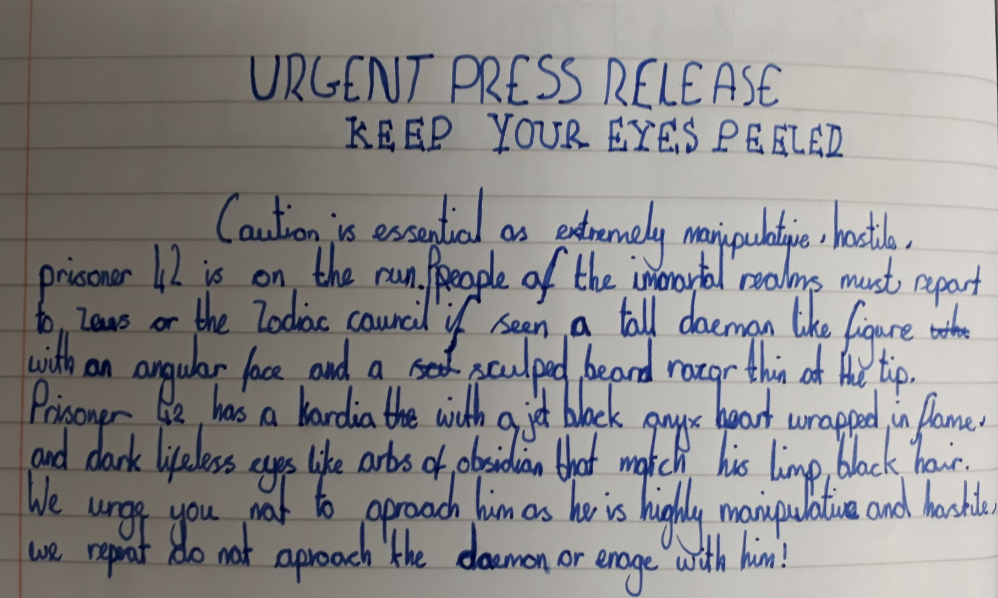 URGENT PRESS RELEASE
KEEP YOUR EYES PEELED
Caution is essential as extremely manipulative, hostile,
prisoner 42 is on the run. People of the immortal realms must report
to Zeus or the Zodiac council if seen a tall daeman like figure
with an angular face and a sculped beard razor thin at the tip.
Prisoner 42 has a kardia the with a jet black onyx heart wrapped in flame,
and dark lifeless eyes like orbs of obsidian that match his limp black hair.
We urge you not to aproach him as he is highly manipulative and hostile,
we repeat do not aproach the daemon or enage with him!